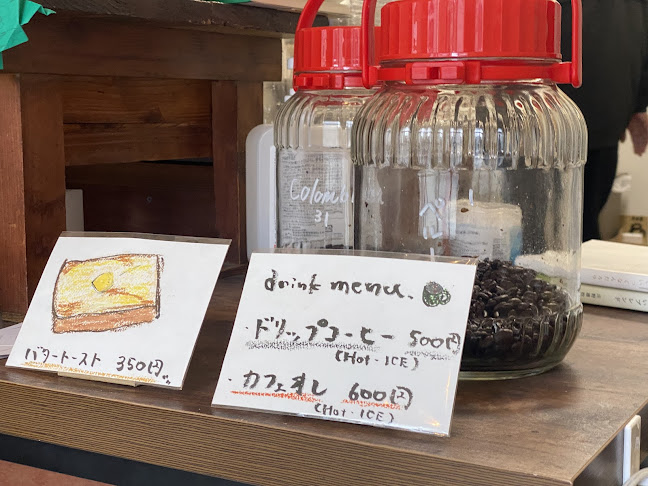 バタートースト 350円
drink menu.
・ドリップコーヒー 500円
(Hot・ICE)
・カフェオレ 600円
(Hot・ICE)
31